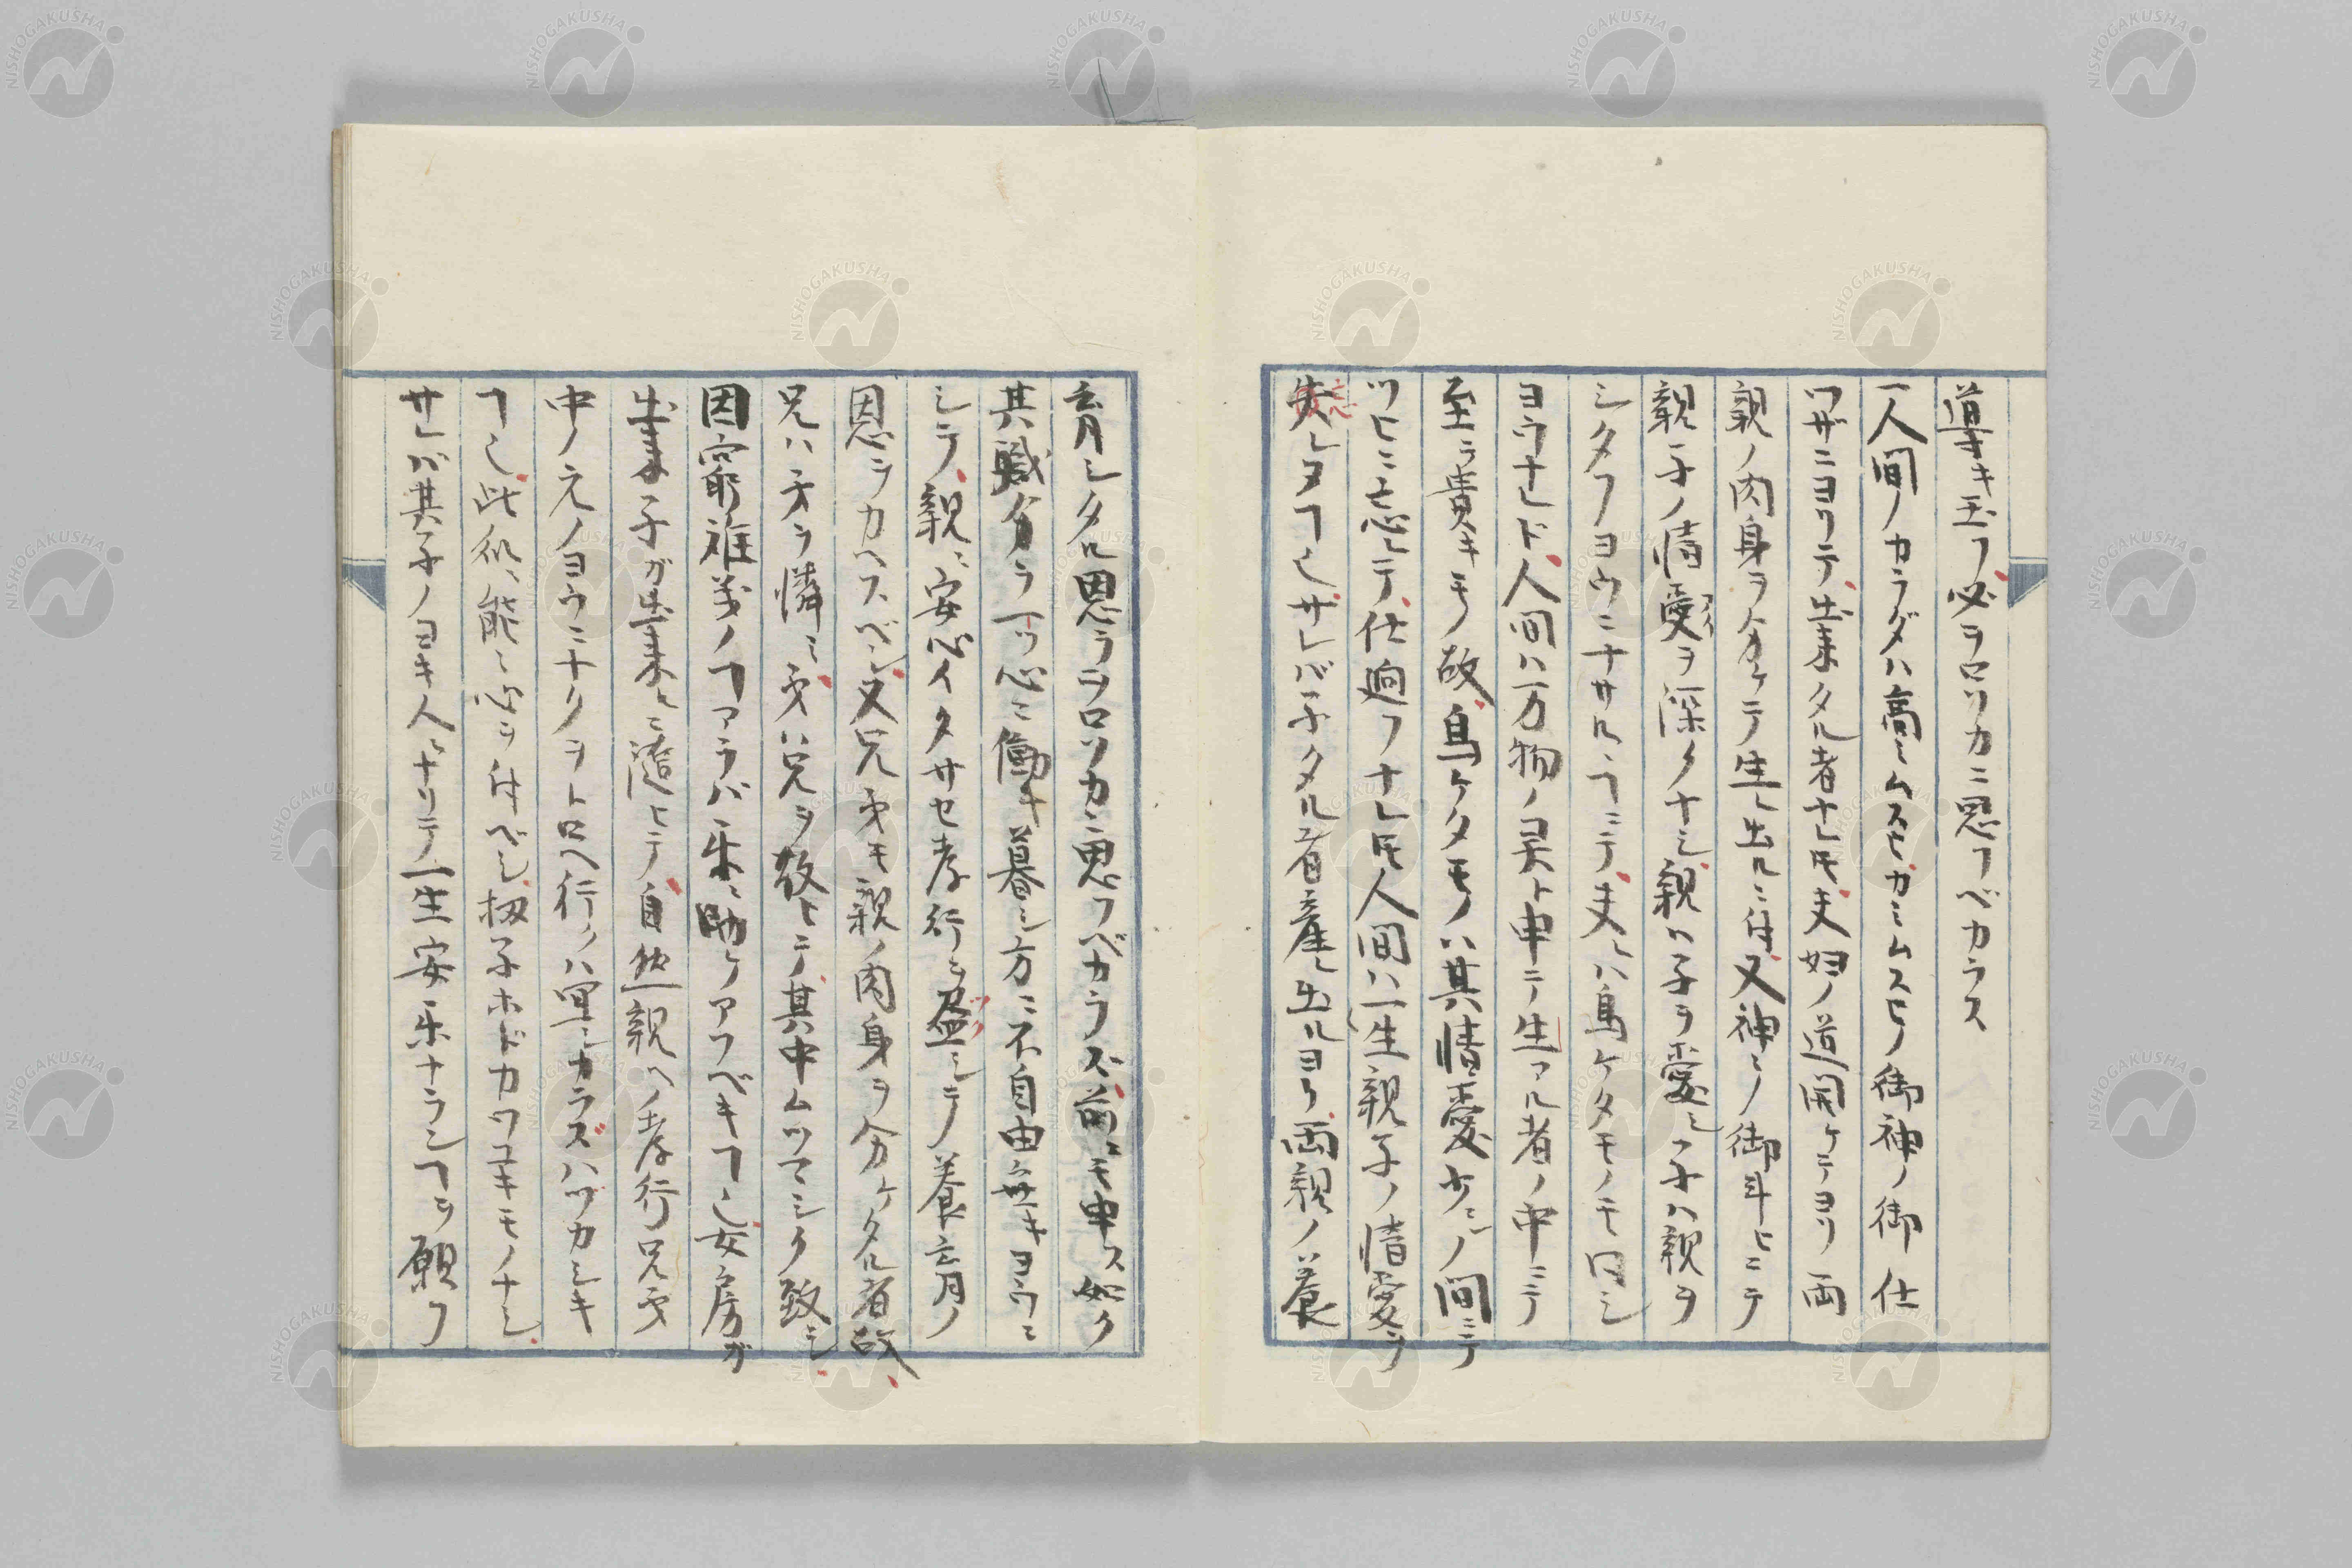 導キ玉フ必ヲロソカニ思フベカラス
一人間ノカラダハ高ミムスヒカミムスヒノ御神ノ御仕
ワザニヨリテ出来タル者ナレ𪜈夫婦ノ道開ケテヨリ両
親ノ肉身ヲ分ケテ生レ出ルニ付又神ミノ御斗ヒニテ
親子ノ情愛ヲ深クナシ親ハ子ヲ愛シ子ハ親ヲ
シタフヨウニナサルヿニテ夫レハ鳥ケタモノモ同シ
ヨウナレド人間ハ万物ノ灵ト申テ生アル者ノ中ニテ
至ラ貴キモノ故鳥ケタモノハ其情愛少シノ間ニテ
ツヒニ忘レテ仕廻フナレ𪜈人間ハ一生親子ノ情愛ヲ
失レヌヿ也サレバ子タル者産レ出ルヨリ両親ノ養
育シタル恩ヲヲロソカニ思フベカラズ前ニモ申ス如ク
其職分ヲ一ツ心ニ働キ暮シ方ニ不自由無キヨウニ
シテ親ニ安心イタサセ孝行ヲ盡シテ養育ノ
恩ヲカヘスベシ又兄弟モ親ノ肉身ヲ分ケタル者故
兄ハ弟ヲ憐ミ弟ハ兄ヲ敬ヒテ其中ムツマシク致シ
困窮難義ノヿアラバ互ニ助ケアフベキヿ也女房ガ
出来子ガ出来ルニ随ヒテ自然親ヘノ孝行兄弟
中ノ元ノヨウニナクヲトロヘ行クハ宜シカラズハヅカシキ
ヿ也此処能ク心ヲ付ベシ扨子ホドカワユキモノナシ
サレバ其子ノヨキ人トナリテ一生安楽ナランヿヲ願フ
NISHOGAKUSHA